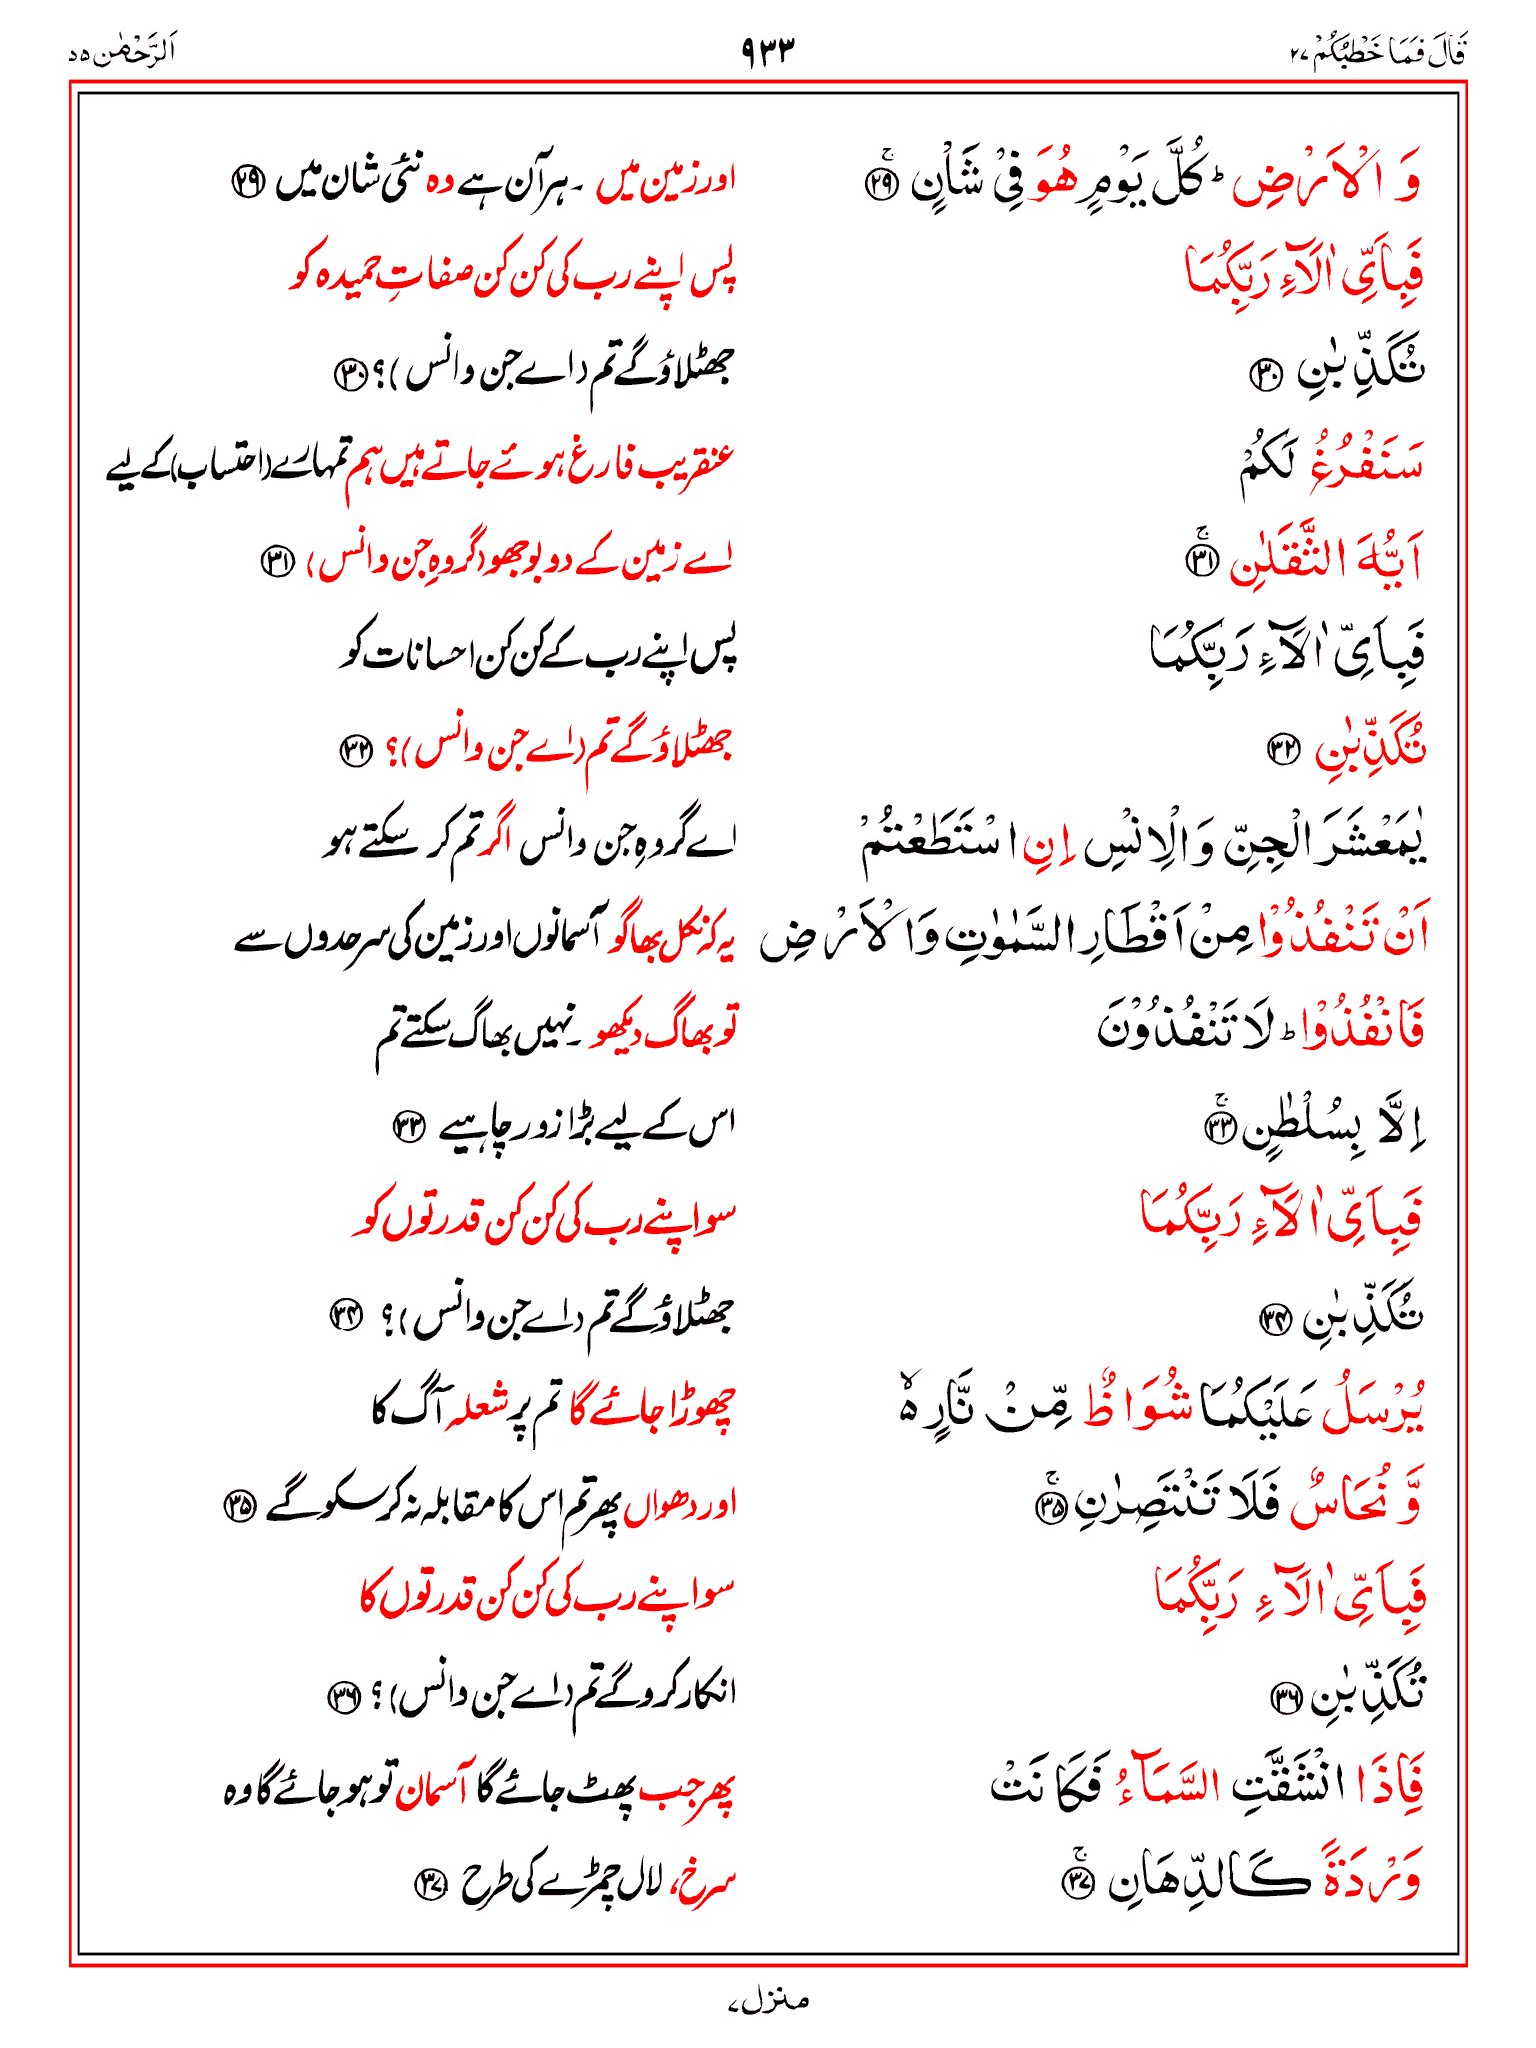 قَالَ فَمَا خَطْبُكُمْ ۲۷ ۹۳۳ اَلرَّحْمٰن ۵۵
وَ الْاَرْضِ ؕ كُلَّ يَوْمٍ هُوَ فِيْ شَاْنٍ ۚ ۲۹ اور زمین میں ۔ ہر آن ہے وہ نئی شان میں ۲۹
فَبِاَيِّ اٰلَآءِ رَبِّكُمَا پس اپنے رب کی کن کن صفاتِ حمیدہ کو
تُكَذِّبٰنِ ۳۰ جھٹلاؤ گے تم (اے جن و انس)؟ ۳۰
سَنَفْرُغُ لَكُمْ عنقریب فارغ ہوئے جاتے ہیں ہم تمہارے (احتساب) کے لیے
اَيُّهَ الثَّقَلٰنِ ۚ ۳۱ اے زمین کے دو بوجھو (گروہِ جن و انس) ۳۱
فَبِاَيِّ اٰلَآءِ رَبِّكُمَا پس اپنے رب کے کن کن احسانات کو
تُكَذِّبٰنِ ۳۲ جھٹلاؤ گے تم (اے جن و انس)؟ ۳۲
يٰمَعْشَرَ الْجِنِّ وَالْاِنْسِ اِنِ اسْتَطَعْتُمْ اے گروہِ جن و انس اگر تم کر سکتے ہو
اَنْ تَنْفُذُوْا مِنْ اَقْطَارِ السَّمٰوٰتِ وَالْاَرْضِ یہ کہ نکل بھاگو آسمانوں اور زمین کی سرحدوں سے
فَانْفُذُوْا ؕ لَا تَنْفُذُوْنَ تو بھاگ دیکھو ۔ نہیں بھاگ سکتے تم
اِلَّا بِسُلْطٰنٍ ۚ ۳۳ اس کے لیے بڑا زور چاہیے ۳۳
فَبِاَيِّ اٰلَآءِ رَبِّكُمَا سو اپنے رب کی کن کن قدرتوں کو
تُكَذِّبٰنِ ۳۴ جھٹلاؤ گے تم (اے جن و انس)؟ ۳۴
يُرْسَلُ عَلَيْكُمَا شُوَاظٌ مِّنْ نَّارٍ ۙ۬ چھوڑا جائے گا تم پر شعلہ آگ کا
وَّ نُحَاسٌ فَلَا تَنْتَصِرٰنِ ۚ ۳۵ اور دھواں پھر تم اس کا مقابلہ نہ کر سکو گے ۳۵
فَبِاَيِّ اٰلَآءِ رَبِّكُمَا سو اپنے رب کی کن کن قدرتوں کا
تُكَذِّبٰنِ ۳۶ انکار کرو گے تم (اے جن و انس)؟ ۳۶
فَاِذَا انْشَقَّتِ السَّمَآءُ فَكَانَتْ پھر جب پھٹ جائے گا آسمان تو ہو جائے گا وہ
وَرْدَةً كَالدِّهَانِ ۚ ۳۷ سرخ، لال چمڑے کی طرح ۳۷
منزل ۷